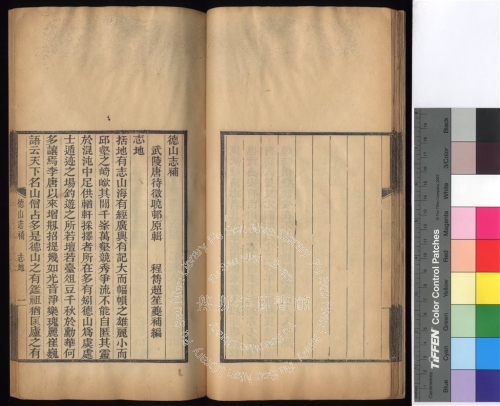 德山志補
武陵唐待徵曉邨原輯 程儁超笙菱補編
志地
括地有志山海有經廣輿有記大而幅幀之雄麗小而
邱壑之崎嶔其間千峯萬壑競秀爭流不能自匿其靈
於混沌中足供輶軒採擇者所在多有矧德山爲虞處
士遁迹之場釣遊之所若壇若臺俎豆千秋於勳華何
多讓焉李唐以來增縣招提幾如光音淨樂瑰麗崔巍
語云天下名山僧占多是德山之有鑑祖猶匡廬之有
德山志補 志地 一
Black
3/Color
White
Magenta
Red
Yellow
Green
Cyan
Blue
TIFFEN Color Control Patches
Centimetres